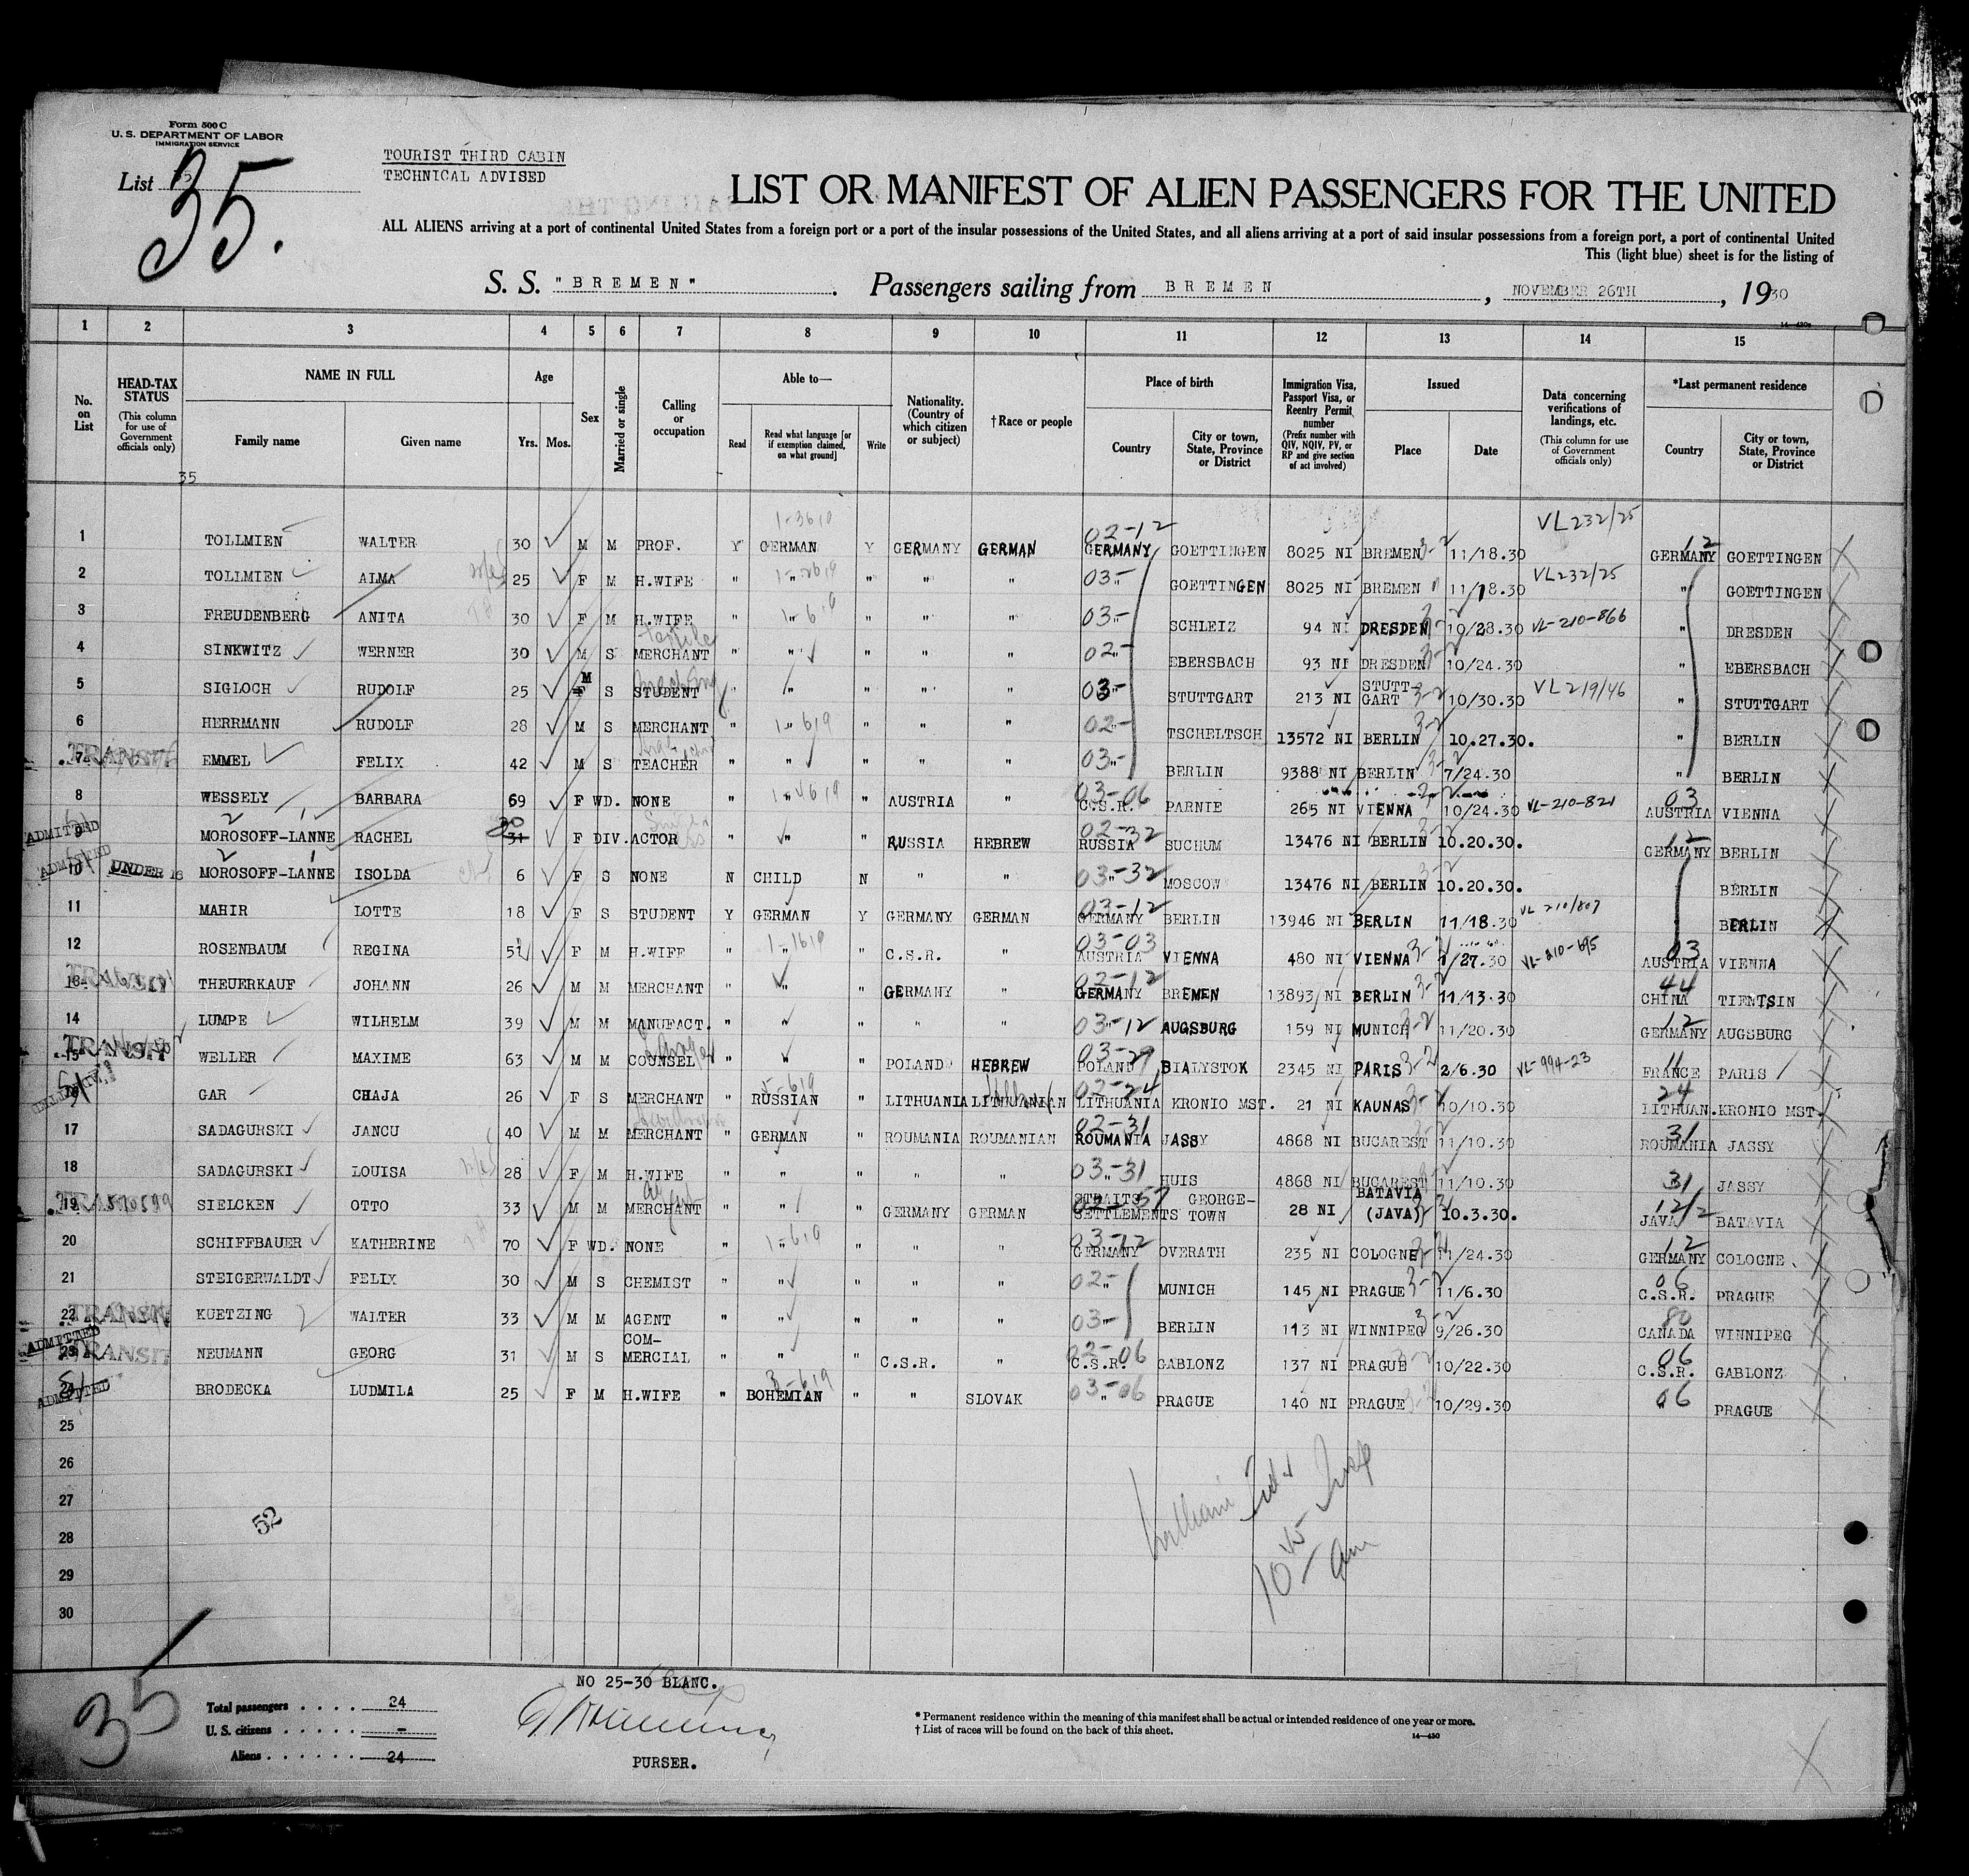 Form 500 C
U. S. DEPARTMENT OF LABOR
IMMIGRATION SERVICE
List 35
35.
TOURIST THIRD CABIN
TECHNICAL ADVISED
LIST OR MANIFEST OF ALIEN PASSENGERS FOR THE UNITED
ALL ALIENS arriving at a port of continental United States from a foreign port or a port of the insular possessions of the United States, and all aliens arriving at a port of said insular possessions from a foreign port, a port of continental United
This (light blue) sheet is for the listing of
S. S. "BREMEN". Passengers sailing from BREMEN, NOVEMBER 26TH, 1930
1 2 3 4 5 6 7 8 9 10 11 12 13 14 15
No. on List
HEAD-TAX STATUS (This column for use of Government officials only)
NAME IN FULL Family name Given name
Age Yrs. Mos.
Sex
Married or single
Calling or occupation
Able to— Read Read what language [or if exemption claimed, on what ground] Write
Nationality. (Country of which citizen or subject)
†Race or people
Place of birth Country City or town, State, Province or District
Immigration Visa, Passport Visa, or Reentry Permit number (Prefix number with QIV, NQIV, PV, or RP and give section of act involved)
Issued Place Date
Data concerning verifications of landings, etc. (This column for use of Government officials only)
*Last permanent residence Country City or town, State, Province or District
35
1 TOLLMIEN WALTER 30 M M PROF. Y GERMAN Y GERMANY GERMAN 02-12 GERMANY GOETTINGEN 8025 NI BREMEN 3-2 11/18.30 VL232/25 12 GERMANY GOETTINGEN
2 TOLLMIEN ALMA 25 F M H.WIFE " " " " " 03- " GOETTINGEN 8025 NI BREMEN " 11/18.30 VL232/25 " GOETTINGEN
3 FREUDENBERG ANITA 30 F M H.WIFE " " " " " 03- " SCHLEIZ 94 NI DRESDEN 3-2 10/28.30 VL-210-866 " DRESDEN
4 SINKWITZ WERNER 30 M S textile MERCHANT " " " " " 02- " EBERSBACH 93 NI DRESDEN 3-2 10/24.30 " EBERSBACH
5 SIGLOCH RUDOLF 25 M F S STUDENT " " " " " 03- " STUTTGART 213 NI STUTT-GART 3-2 10/30.30 VL219/46 " STUTTGART
6 HERRMANN RUDOLF 28 M S MERCHANT " " " " " 02- " TSCHELTSCH 13572 NI BERLIN 3-2 10.27.30. " BERLIN
TRANSIT 7 EMMEL FELIX 42 M S TEACHER " " " " " 03- " BERLIN 9388 NI BERLIN 3-2 7/24.30 " BERLIN
8 WESSELY BARBARA 69 F WD. NONE " " " AUSTRIA " 03-06 C.S.R. PARNIE 265 NI VIENNA 10/24.30 VL-210-821 03 AUSTRIA VIENNA
ADMITTED 9 MOROSOFF-LANNE RACHEL 30 31 F DIV. ACTOR " " " RUSSIA HEBREW 02-32 RUSSIA SUCHUM 13476 NI BERLIN 3-2 10.20.30. 12 GERMANY BERLIN
ADMITTED 10 UNDER 16 MOROSOFF-LANNE ISOLDA 6 F S NONE N CHILD N " " 03-32 " MOSCOW 13476 NI BERLIN 10.20.30. BERLIN
11 MAHIR LOTTE 18 F S STUDENT Y GERMAN Y GERMANY GERMAN 03-12 GERMANY BERLIN 13946 NI BERLIN 11/18.30 VL 210/807 BERLIN
12 ROSENBAUM REGINA 52 F M H.WIFE " " " C.S.R. " 03-03 AUSTRIA VIENNA 480 NI VIENNA 3-2 1/27.30 VL-210-695 03 AUSTRIA VIENNA
TRANSIT 13 THEUERKAUF JOHANN 26 M M MERCHANT " " " GERMANY " 02-12 GERMANY BREMEN 13893 NI BERLIN 3-2 11/13.30 44 CHINA TIENTSIN
14 LUMPE WILHELM 39 M M MANUFACT. " " " " " 03-12 " AUGSBURG 159 NI MUNICH 3-2 11/20.30 12 GERMANY AUGSBURG
TRANSIT 15 WELLER MAXIME 63 M M COUNSEL " " " POLAND HEBREW 03-29 POLAND BIALYSTOK 2345 NI PARIS 3-2 2/6.30 VL-994-23 11 FRANCE PARIS
GAR CHAJA 26 F S MERCHANT " 5-619 RUSSIAN " LITHUANIA LITHUANIAN 02-24 LITHUANIA KRONIO MST. 21 NI KAUNAS 3-2 10/10.30 24 LITHUAN. KRONIO MST.
17 SADAGURSKI JANCU 40 M M MERCHANT " GERMAN " ROUMANIA ROUMANIAN 02-31 ROUMANIA JASSY 4868 NI BUCAREST 11/10.30 31 ROUMANIA JASSY
18 SADAGURSKI LOUISA 28 F M H.WIFE " " " " " 03-31 " HUIS 4868 NI BUCAREST 11/10.30 31 JASSY
TRANSIT 19 SIELCKEN OTTO 33 M M MERCHANT " " " GERMANY GERMAN 02-57 STRAITS SETTLEMENTS GEORGE-TOWN 28 NI BATAVIA (JAVA) 10.3.30. JAVA BATAVIA
20 SCHIFFBAUER KATHERINE 70 F WD. NONE " " " " " 03-12 GERMANY OVERATH 235 NI COLOGNE 3-2 11/24.30 12 GERMANY COLOGNE
21 STEIGERWALDT FELIX 30 M S CHEMIST " " " " " 02- " MUNICH 145 NI PRAGUE 3-2 11/6.30 06 C.S.R. PRAGUE
TRANSIT 22 KUETZING WALTER 33 M M AGENT " " " " " 03- " BERLIN 113 NI WINNIPEG 3-2 9/26.30 80 CANADA WINNIPEG
ADMITTED TRANSIT 23 NEUMANN GEORG 31 M S COM-MERCIAL " " " C.S.R. " 02-06 C.S.R. GABLONZ 137 NI PRAGUE 10/22.30 06 C.S.R. GABLONZ
ADMITTED 24 BRODECKA LUDMILA 25 F M H.WIFE " 3-619 BOHEMIAN " " SLOVAK 03-06 " PRAGUE 140 NI PRAGUE 10/29.30 06 " PRAGUE
25
26
27
28
29
30
52
William
10 45 am
35
NO 25-30 BLANC.
Total passengers . . . . 24
U. S. citizens . . . . . -
Aliens . . . . . . 24
PURSER.
* Permanent residence within the meaning of this manifest shall be actual or intended residence of one year or more.
† List of races will be found on the back of this sheet.
14—430